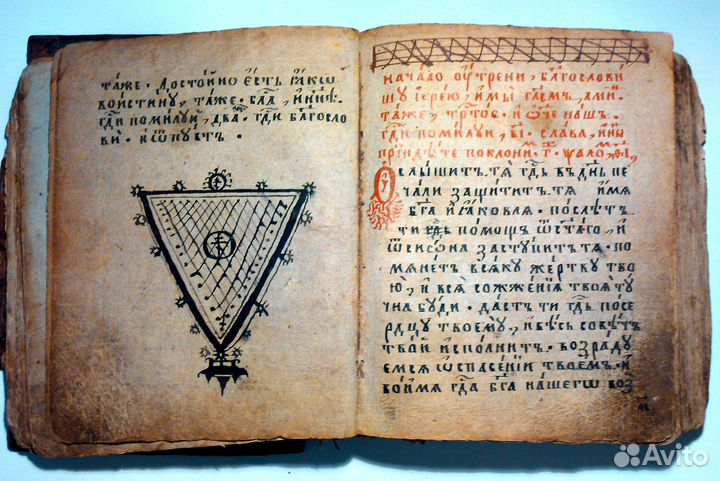 та́же · Досто́йно є҆́сть ꙗ҆́кѡ
вои́стинꙋ, та́же · и҆ ны́нѣ ·
гдⷭ҇и поми́лꙋй, два · гдⷭ҇и благосло
ви · и҆ ѿпꙋстъ ·
нача́ло ᲂу҆́трени, благослови́в
шꙋ і҆ере́ю, и҆ мы̀ гл҃емъ, а҆ми́.
та́же, трⷭ҇тое · и҆ ѻ҆́ч҃е на́шъ .
гдⷭ҇и поми́лꙋй, в҃і · сла́ва, и҆ ны́
прїидѣ́те поклони́ · г҃ · ѱало́, ѳ҃і,
Оу
слы́шитъ тѧ̀ гдⷭ҇ь въ де́нь пе
ча́ли защи́титъ тѧ̀ и҆́мѧ
бг҃а і҆а́ковлѧ · по́слетъ
ти гдⷭ҇ь по́мощь ѿ ст҃а́гѡ, и҆
ѿ сїѡ́на застꙋ́питъ тѧ̀ · по
мѧне́тъ всѧ́кꙋ же́ртвꙋ тво
ю̀, и҆ всѧ̀ сожже́нїѧ твоѧ̀ тꙋ
чна бꙋ́ди · да́стъ ти гдⷭ҇ь по се
рдцꙋ твоемꙋ̀, и҆ ве́сь совѣ́тъ
тво́й и҆спо́лнитъ · возра́дꙋ
емъсѧ ѡ҆ спасе́нїи твое́мъ · и҆
во и҆́мѧ гдⷭ҇а бг҃а на́шегѡ воз
Avito